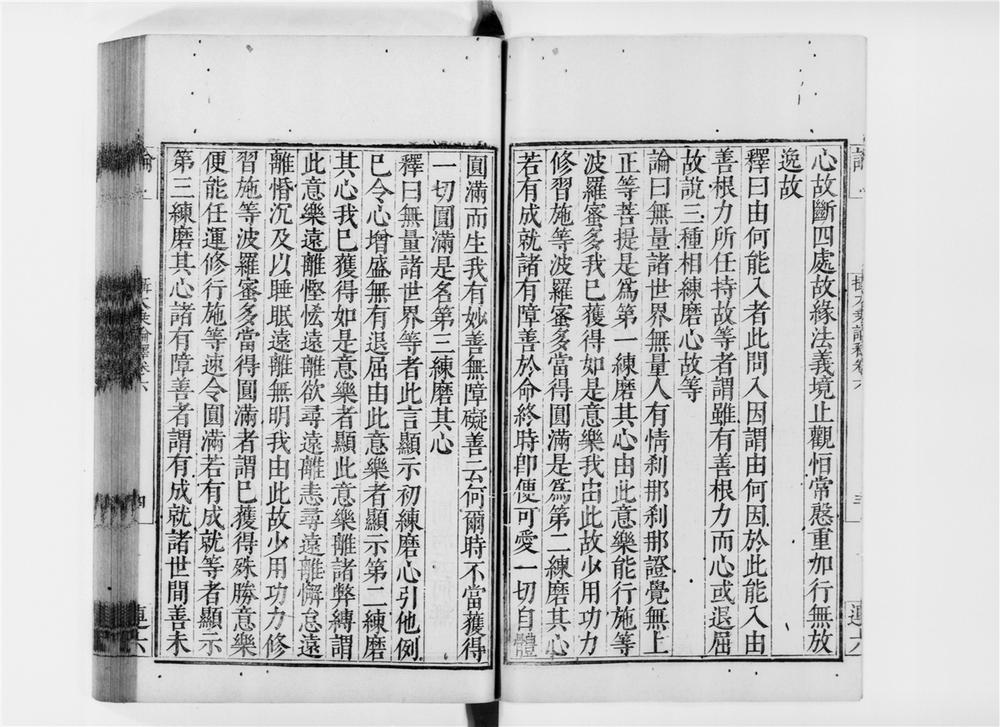 心故斷四處故緣法義境止觀恒常慇重加行無放
逸故
釋曰由何能入者此問入因謂由何因於此能入由
善根力所任持故等者謂雖有善根力而心或退屈
故說三種相練磨心故等
論曰無量諸世界無量人有情刹那刹那證覺無上
正等菩提是爲第一練磨其心由此意樂能行施等
波羅蜜多我已獲得如是意樂我由此故少用功力
修習施等波羅蜜多當得圓滿是爲第二練磨其心
若有成就諸有障善於命終時即便可愛一切自體
圓滿而生我有妙善無障礙善云何爾時不當獲得
一切圓滿是名第三練磨其心
釋曰無量諸世界等者此言顯示初練磨心引他例
已令心增盛無有退屈由此意樂者顯示第二練磨
其心我已獲得如是意樂者顯此意樂離諸弊縛謂
此意樂遠離慳悋遠離欲尋遠離恚尋遠離懈怠遠
離惛沉及以睡眠遠離無明我由此故少用功力修
習施等波羅蜜多當得圓滿者謂已獲得殊勝意樂
便能任運修行施等速令圓滿若有成就等者顯示
第三練磨其心諸有障善者謂有成就諸世間善未